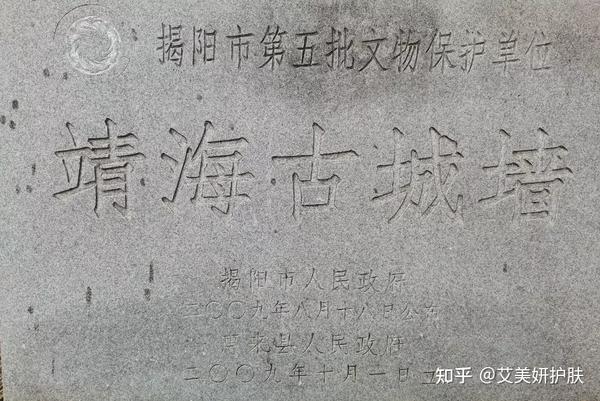 揭阳市第五批文物保护单位
靖海古城墙
揭阳市人民政府
二〇〇九年八月十八日公布
惠来县人民政府
二〇〇九年十月一日立
知乎 @艾美妍护肤